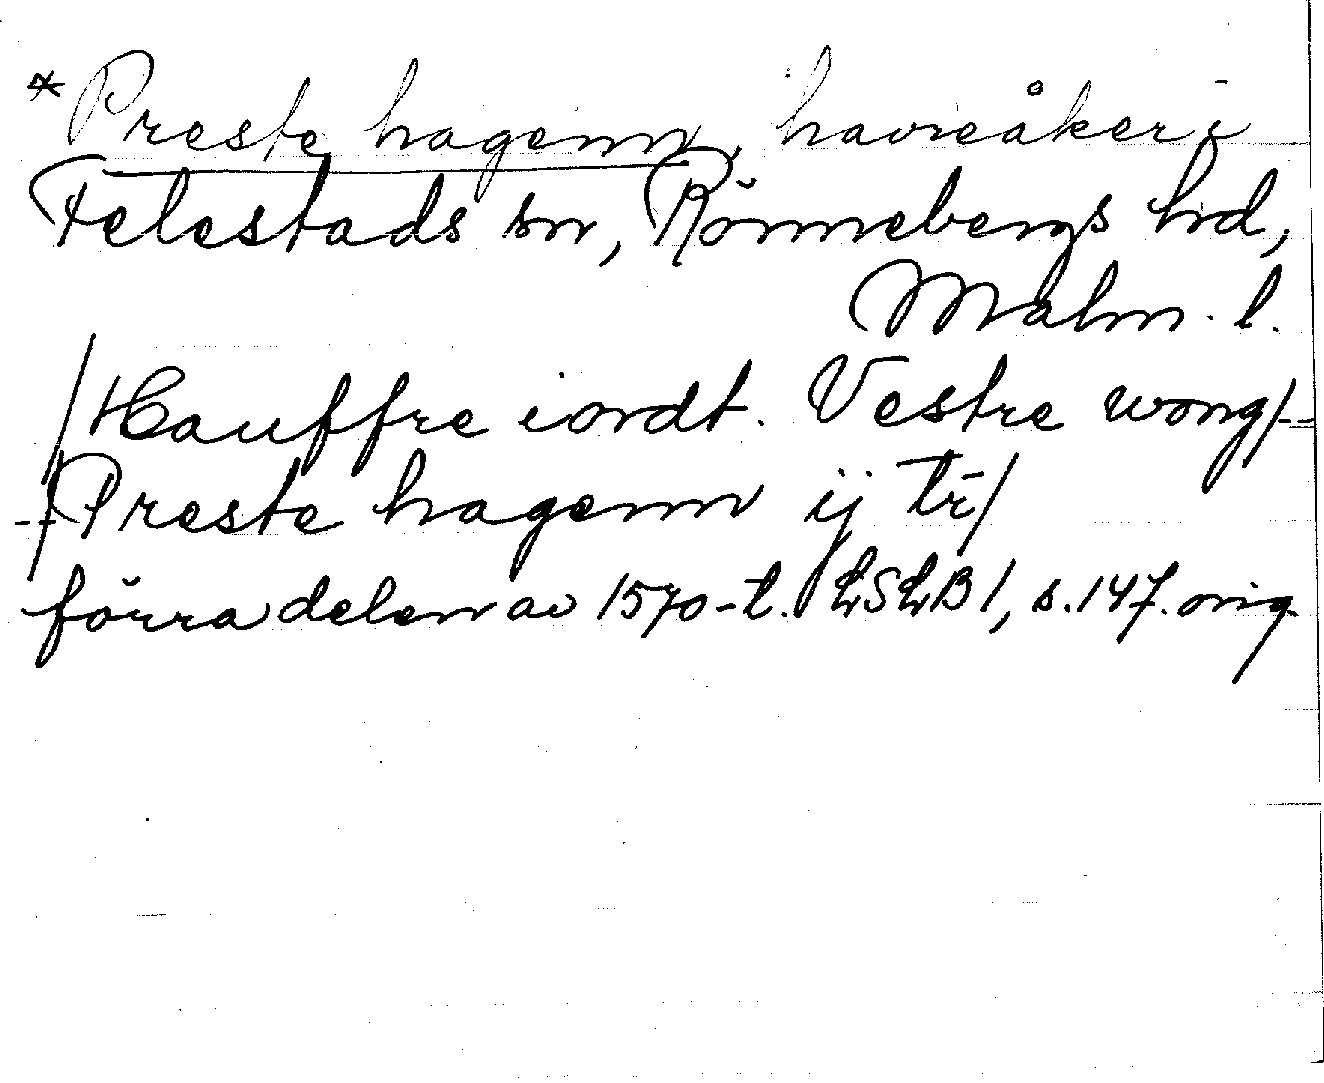 *Preste hagenn, havreåker i
Felestads sn, Rönnebergs hd,
Malm. l.
/Hauffre iordt. Vestre wong/--
--/Preste hagenn ij tr̄/
förra delen av 1570-t. LSLB 1, s. 147. orig.